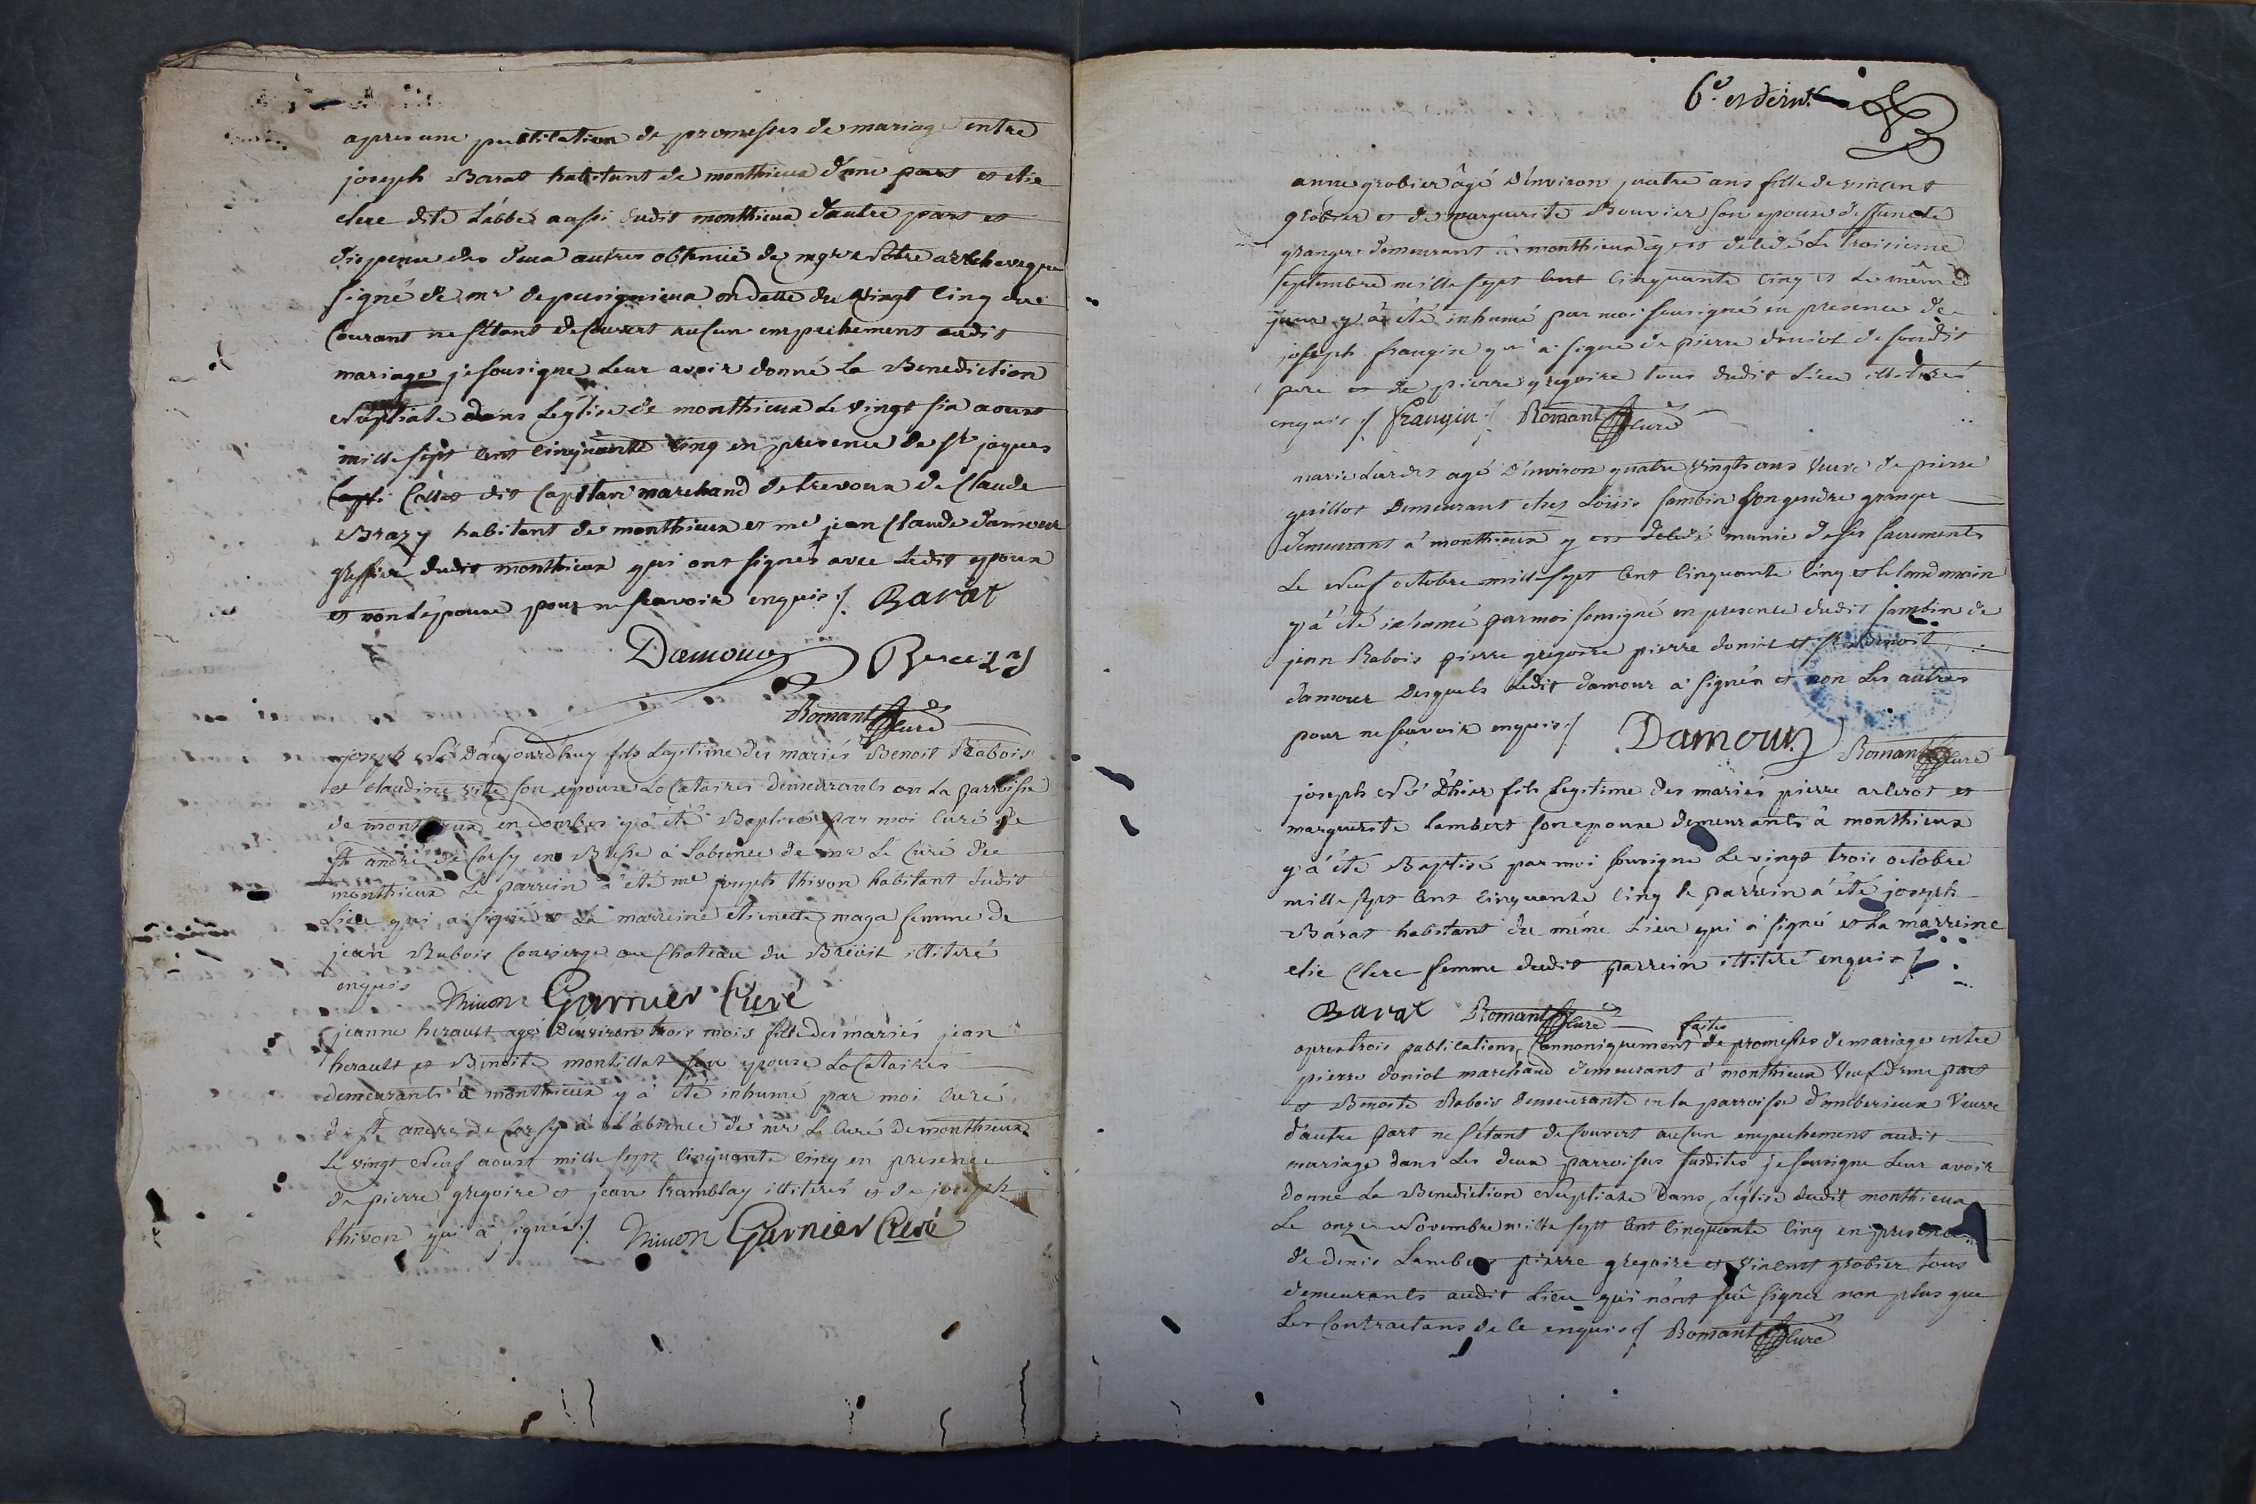 apres une publication de promesses de mariage entre
joseph Barat habitant de monthieux d'une part et elie
clerc dite L'abbé aussi dudit monthieux d'autre part et
dispense des deux autres obtenüe de mgr notre archeveque
signé de mr de pusignieux en datte du vingt cinq du
Courant ne s'étant decouvert aucun empechement audit
mariage je sousigne leur avoir donné La Benediction
Nuptiale dans L'église de monthieux Le vingt six aoust
mille sept cent cinquante cinq en presence de sr jaques
Collet dit Capitan marchand de trevoux de Claude
Brazy habitant de monthieux et me jean Claude damour
greffier dudit monthieux qui ont signés avec Ledit epoux
et non L'épouse pour ne scavoir enquis ./. Barat
Damour
Romant Curé
joseph Né d'aujourd'huy fils Legitime des mariés Benoit Rabois
et claudine vite son epouse Locataires demeurants en La parroisse
de monthieux en dombes y á été Baptisé par moi Curé de
st andré de Corsy en Bresse á L'absence de mr Le Curé de
monthieux Le parrein á été me joseph thivon habitant dudit
Lieu qui a signé et La marreine etienette maga femme de
jean Rabois Concierge au Chateau du Breüil illiteré
enquis thivon Garnier Curé
jeanne herault agé d'environ trois mois fille des mariés jean
herault et Benoite montillat son epouse Locataires
demeurants á monthieux y á été inhumé par moi Curé
de st andré de Corsy á L'absence de mr Le Curé de monthieux
Le vingt Neuf aoust mille sept cinquante cinq en presence
de pierre gregoire et jean tramblay illiterés et de joseph
thivon qui á signé ./. thivon Garnier Curé
6e et dern.
anne grobier âgé d'environ quatre ans fille de vincent
grobier et de marguerite Bouvier son epouse deffuncte
granger demeurant á monthieux y est décedé Le troisieme
septembre mille sept cent cinquante cinq et Le même
jour y á été inhumé par moi sousigné en presence de
joseph frangin qui á signé de pierre doniol
pere et de pierre gregoire tous dudit Lieu illiterés
enquis ./. frangin ./. Romant Curé
marie agé d'environ quatre vingts ans Veuve de pierre
guillot Demeurant chez Loüis sambin son gendre granger
demeurant á monthieux y est decedé munie de ses sacrements
Le Neuf octobre mille sept cent cinquante cinq et le landemain
y á été inhumé par moi sousigné en presence dudit sambin de
jean Rabois pierre gregoire pierre doniol et sr Benoit
damour Desquels Ledit damour á signé et non Les autres
pour ne scavoir enquis ./. Damour Romant Curé
joseph Né D'hier fils Legitime des mariés pierre arlerot et
marguerite Lambert son epouse demeurants á monthieux
y á été Baptisé par moi sousigne Le vingt trois octobre
mille sept cent cinquante cinq le parrein á été joseph
Barat habitant du même Lieu qui á signé et La marreine
elie Clerc femme dudit parrein illiteré enquis ./.
Barat Romant Curé
apres trois publications Cannoniquement faites de promesses de mariage entre
pierre doniol marchand demeurant á monthieux Veuf d'une part
et Benoite Rabois demeurante en la parroisse d'amberieux Veuve
d'autre part ne s'étant decouvert aucun empechement audit
mariage dans Les deux parroisses susdites je sousigne Leur avoir
donné La Benediction Nuptiale Dans L'église dudit monthieux
Le onze Novembre mille sept cent cinquante cinq en presence
de denis Lambert pierre gregoire et vincent grobier tous
demeurants audit Lieu qui n'ont sçü signer non plus que
Les Contractans de Ce enquis ./. Romant Curé